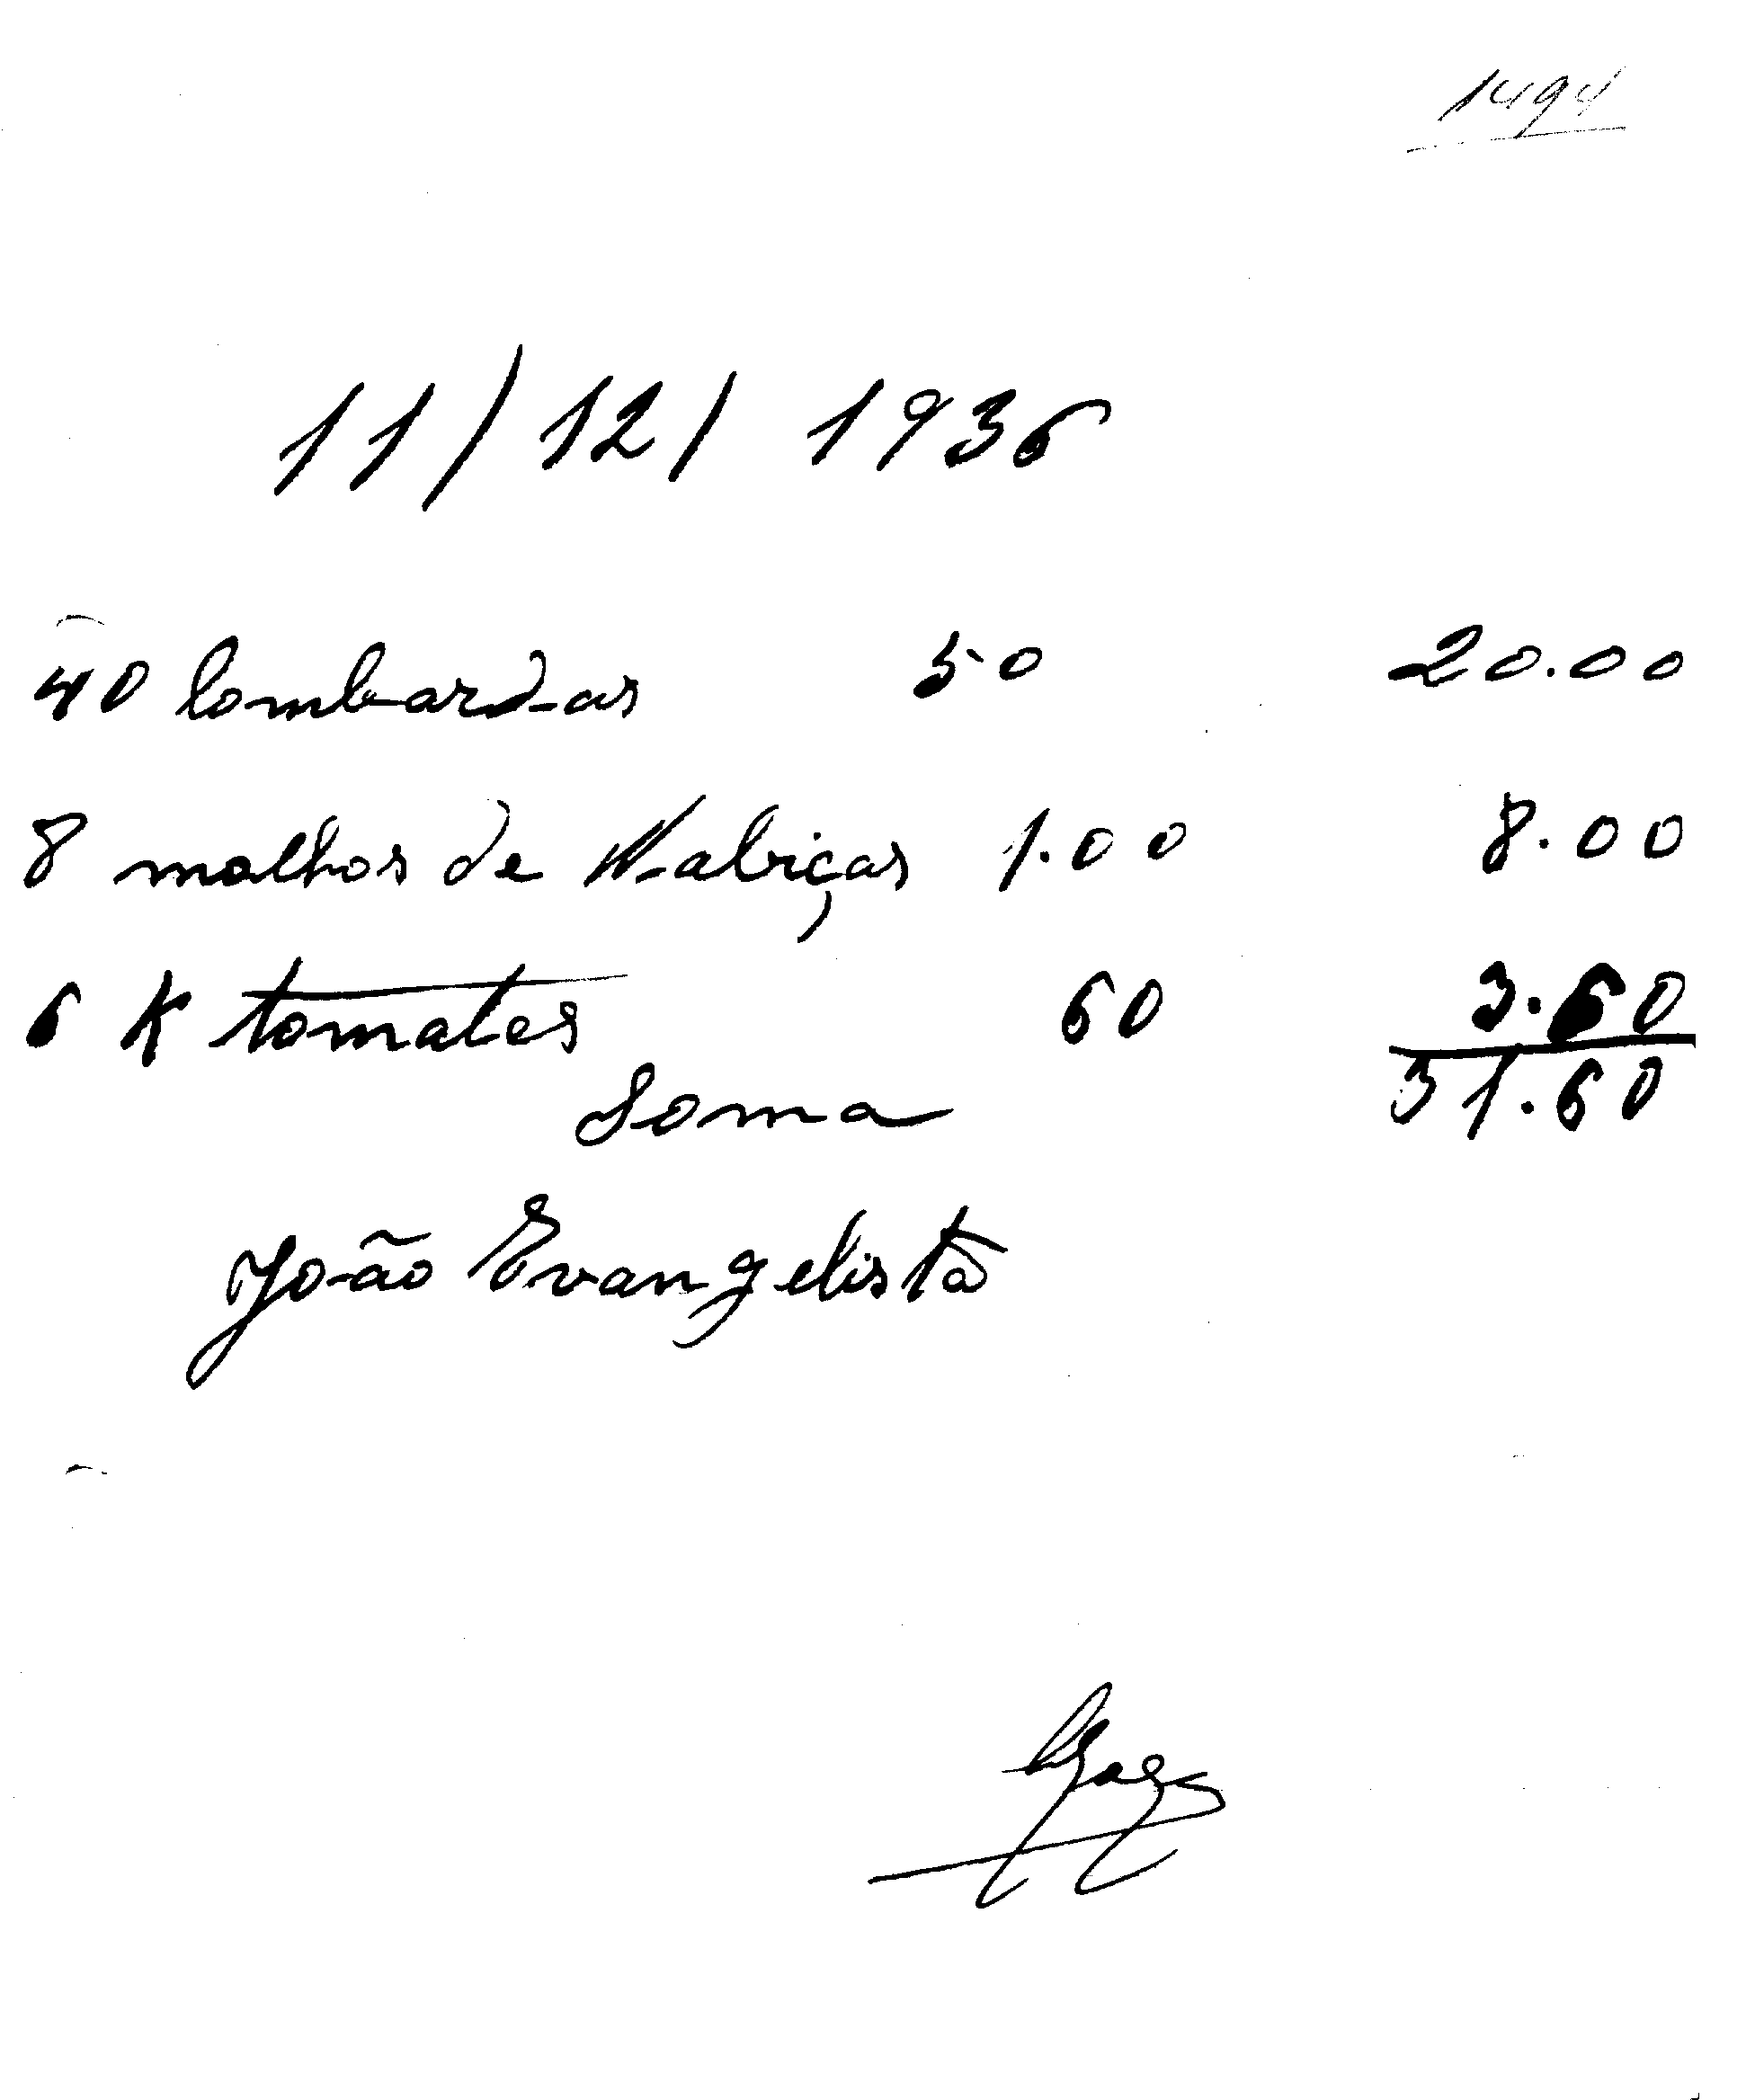 1494
11/12/1936
40 lombardas 50 20.00
8 molhos de Nabiças 1.00 8.00
6 K tomates 60 3.60
Soma 31.60
João Evangelista